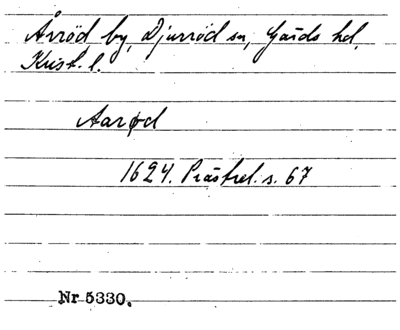 Årröd by, Djurröd sn, Gärds hd,
Krist. l.
Aarød
1624. Prästrel. s. 67
Nr 5330.